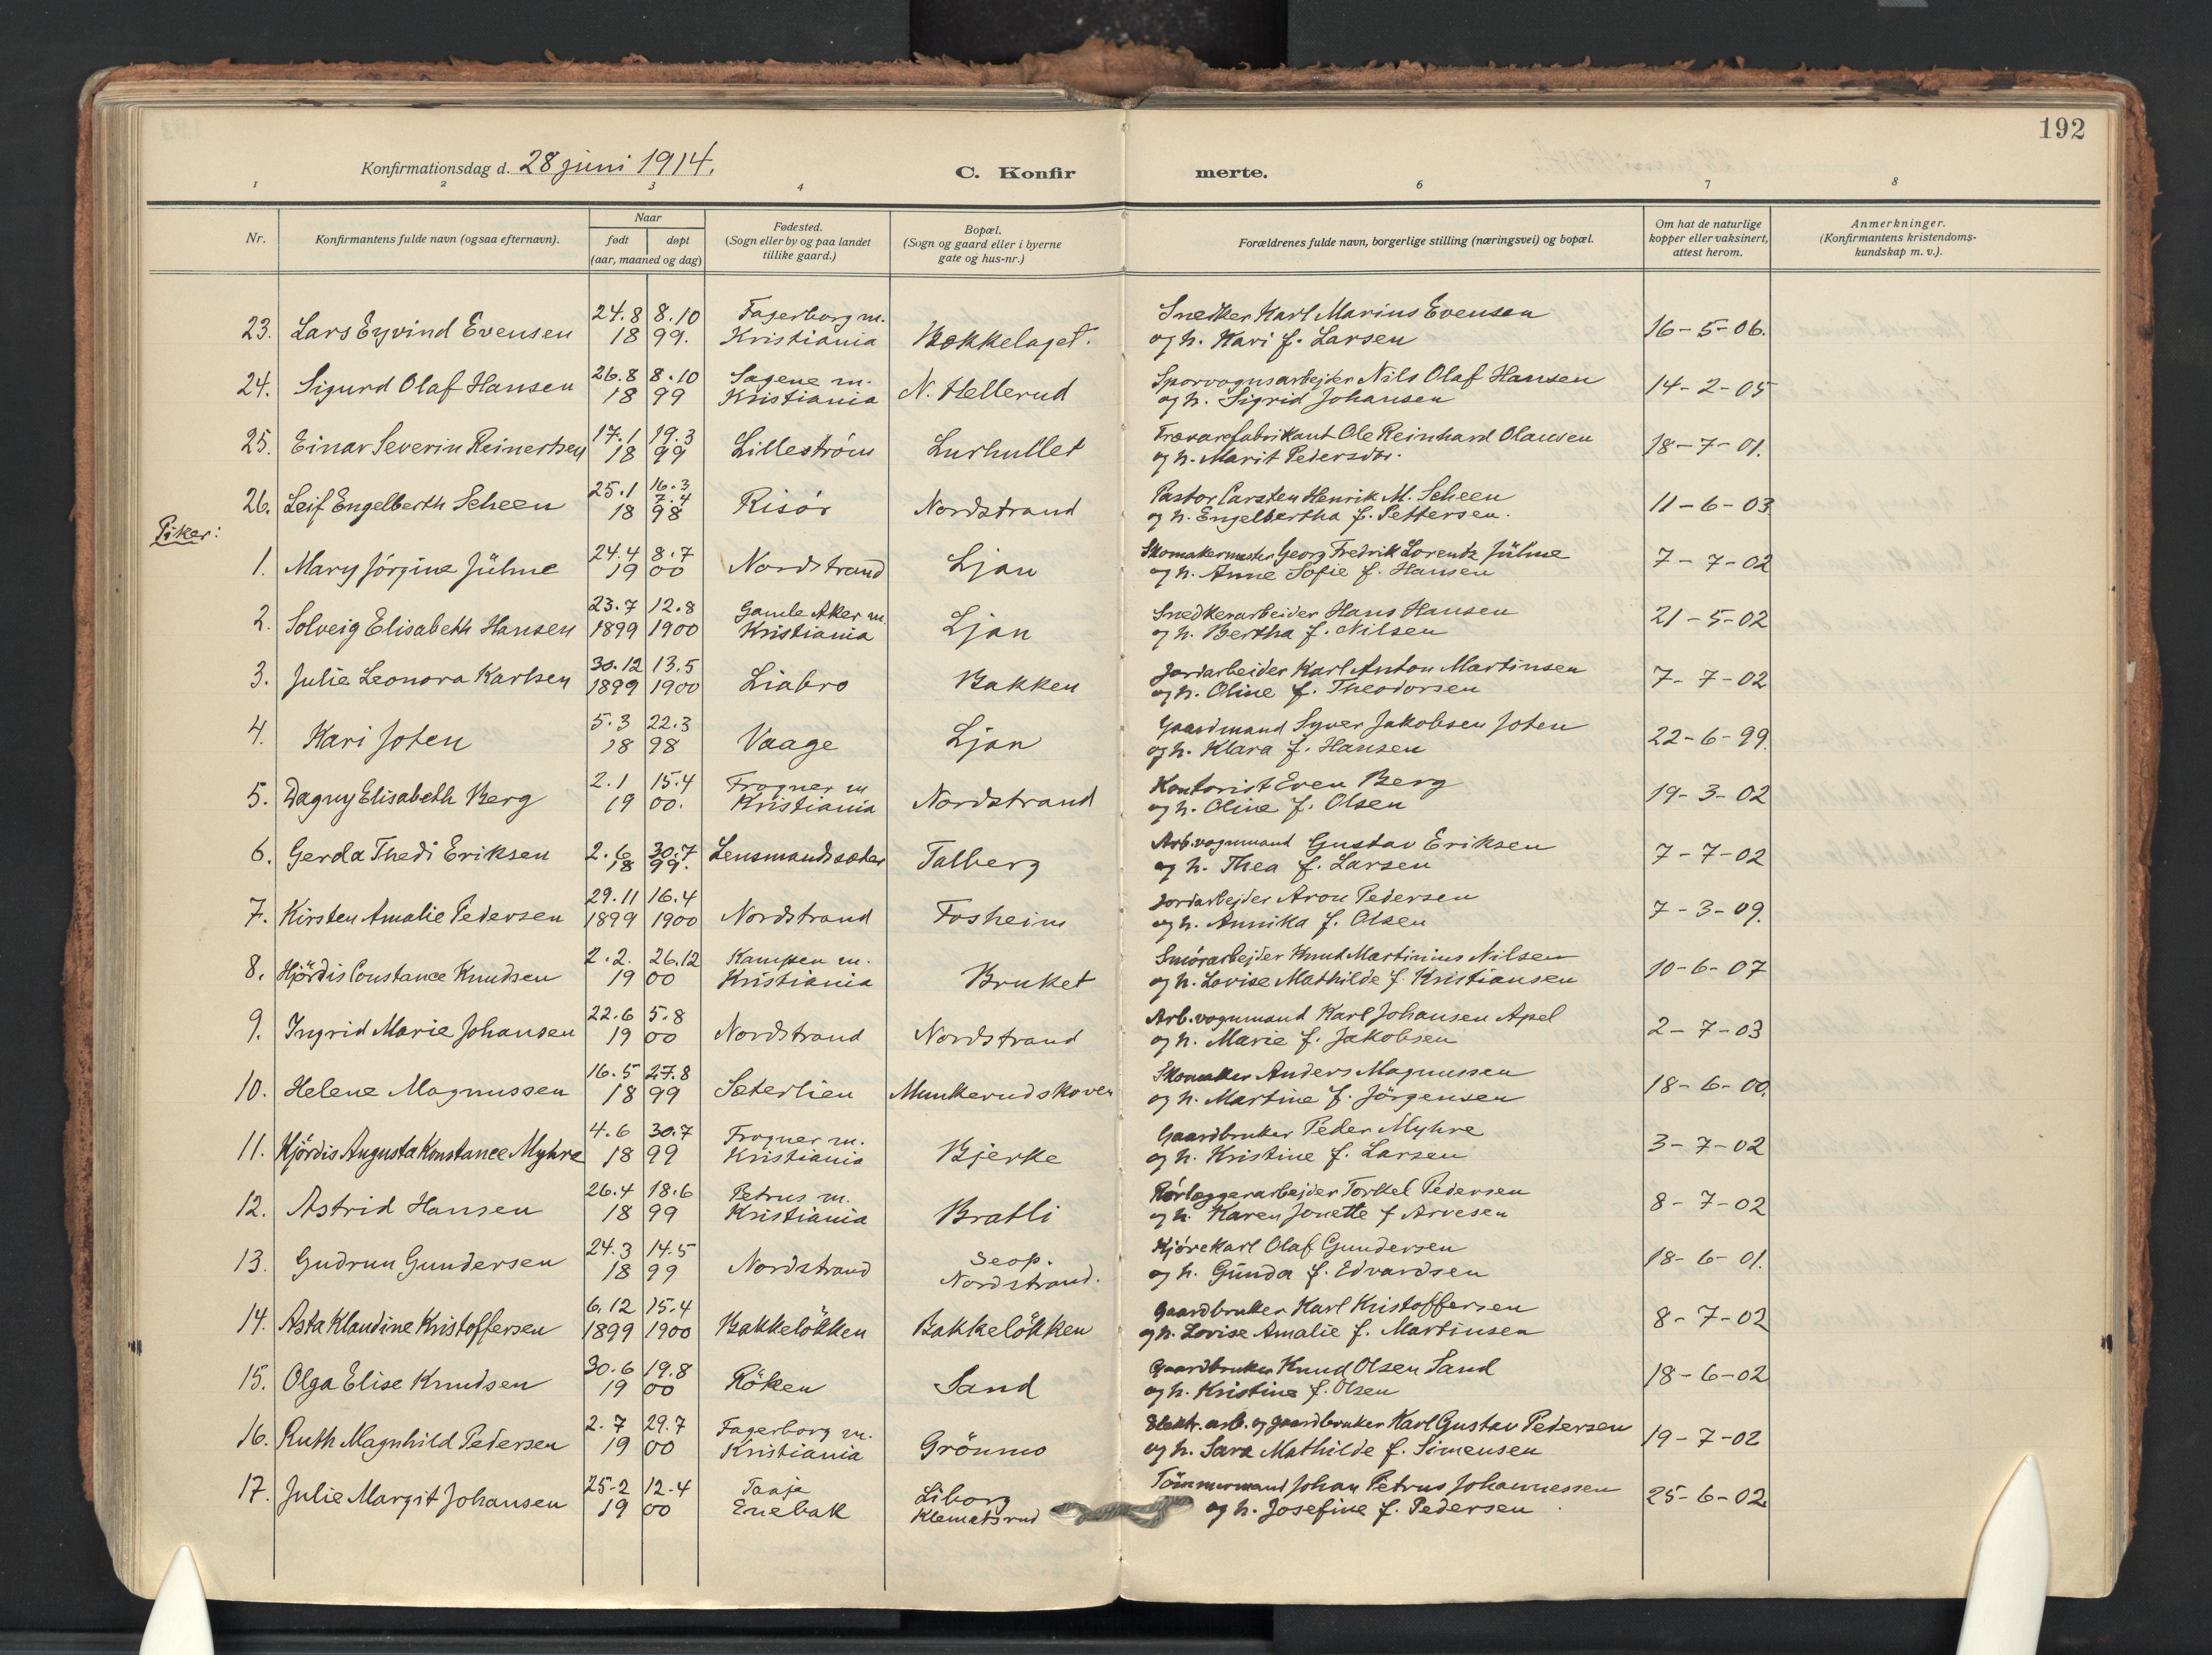 192
Konfirmationsdag d. 28 juni 1914.
C. Konfirmerte.
1 2 3 4 6 7 8
Nr.
Konfirmantens fulde navn (ogsaa efternavn).
Naar
født døpt
(aar, maaned og dag)
Fødested.
(Sogn eller by og paa landet
tillike gaard.)
Bopæl.
(Sogn og gaard eller i byerne
gate og hus-nr.)
Forældrenes fulde navn, borgerlige stilling (næringsvei) og bopæl.
Om hat de naturlige
kopper eller vaksinert,
attest herom.
Anmerkninger.
(Konfirmantens kristendoms-
kundskap m. v.).
24.8 8.10 Fagerborg m. Snedker Karl Marius Evensen
23. Lars Eyvind Evensen 18 99. Kristiania Bækkelaget. og h. Kari f. Larsen 16-5-06.
26.8 8.10 Sagene m. Sporvognsarbejder Nils Olaf Hansen
24. Sigurd Olaf Hansen 18 99 Kristiania N. Hellerud og h. Sigrid Johansen 14-2-05
17.1 19.3 Trævarefabrikant Ole Reinhard Olausen
25. Einar Severin Reinertsen 18 99 Lilleström Lurhullet og h. Marit Pedersdtr. 18-7-01.
25.1 16.3 7.4 Pastor Carsten Henrik M. Scheen
26. Leif Engelberth Scheen 18 98 Risör Nordstrand og h. Engelbertha f. Pettersen. 11-6-03
Piker:
24.4 8.7 Skomakermester Georg Fredrik Lorentz Jühne
1. Mary Jörgine Jühne 19 00 Nordstrand Ljan og h. Anne Sofie f. Hansen 7-7-02
23.7 12.8 Gamle Aker m. Snedkerarbeider Hans Hansen
2. Solveig Elisabeth Hansen 1899 1900 Kristiania Ljan og h. Bertha f. Nilsen 21-5-02
30.12 13.5 Jordarbeider Karl Anton Martinsen
3. Julie Leonora Karlsen 1899 1900 Liabro Bakken og h. Oline f. Theodorsen 7-7-02
5.3 22.3 Gaardmand Syver Jakobsen Joten
4. Kari Joten 18 98 Vaage Ljan og h. Klara f. Hansen 22-6-99.
2.1 15.4 Frogner m Kontorist Even Berg
5. Dagny Elisabeth Berg 19 00. Kristiania Nordstrand og h. Oline f. Olsen 19-3-02
2.6 30.7 Arb.vognmand Gustav Eriksen
6. Gerda Thedi Eriksen 18 99. Lensmandsæter Talberg og h. Thea f. Larsen 7-7-02
29.11 16.4 Jordarbejder Aron Pedersen
7. Kirsten Amalie Pedersen 1899 1900 Nordstrand Fosheim og h. Annika f. Olsen 7-3-09.
2.2. 26.12 Kampen m. Smörarbejder Knut Martinius Nilsen
8. Hjördis Constance Knudsen 19 00 Kristiania Bruket og h. Lovise Mathilde f. Kristiansen 10-6-07
22.6 5.8 Arb.vognmand Karl Johansen Apel
9. Ingrid Marie Johansen 19 00 Nordstrand Nordstrand og h. Marie f. Jakobsen 2-7-03
16.5 27.8 Skomaker Anders Magnussen
10. Helene Magnussen 18 99 Sæterlien Munkerudskoven og h. Martine f. Jörgensen 18-6-00.
4.6 30.7 Frogner m. Gaardbruker Peder Myhre
11. Hjördis Augusta Konstance Myhre 18 99 Kristiania Bjerke og h. Kristine f. Larsen 3-7-02
26.4 18.6 Petrus m. Rörlæggerarbejder Torkel Pedersen
12. Astrid Hansen 18 99 Kristiania Bratli og h. Karen Jonette f Arvesen 8-7-02
24.3 14.5 Seop. Kjörekarl Olaf Gundersen
13. Gudrun Gundersen 18 99 Nordstrand Nordstrand. og h. Gunda f. Edvardsen 18-6-01.
6.12 15.4 Gaardbruker Karl Kristoffersen
14. Asta Klaudine Kristoffersen 1899 1900 Bakkelökken Bakkelökken og h. Lovise Amalie f. Martinsen 8-7-02
30.6 19.8 Gaardbruker Knud Olsen Sand
15. Olga Elise Knudsen 19 00 Röken Sand og h. Kristine f. Olsen 18-6-02
2.7 29.7 Fagerborg m. Elektr. arb. og gaardbruker Karl Gustav Pedersen
16. Ruth Magnhild Pedersen 19 00 Kristiania Grönmo og h. Sara Mathilde f. Simensen 19-7-02
25-2 12-4 Taaje Liborg Tömmermand Johan Petrus Johannessen
17. Julie Margit Johansen 19 00 Enebak Klemetsrud og h. Josefine f. Pedersen 25-6-02.